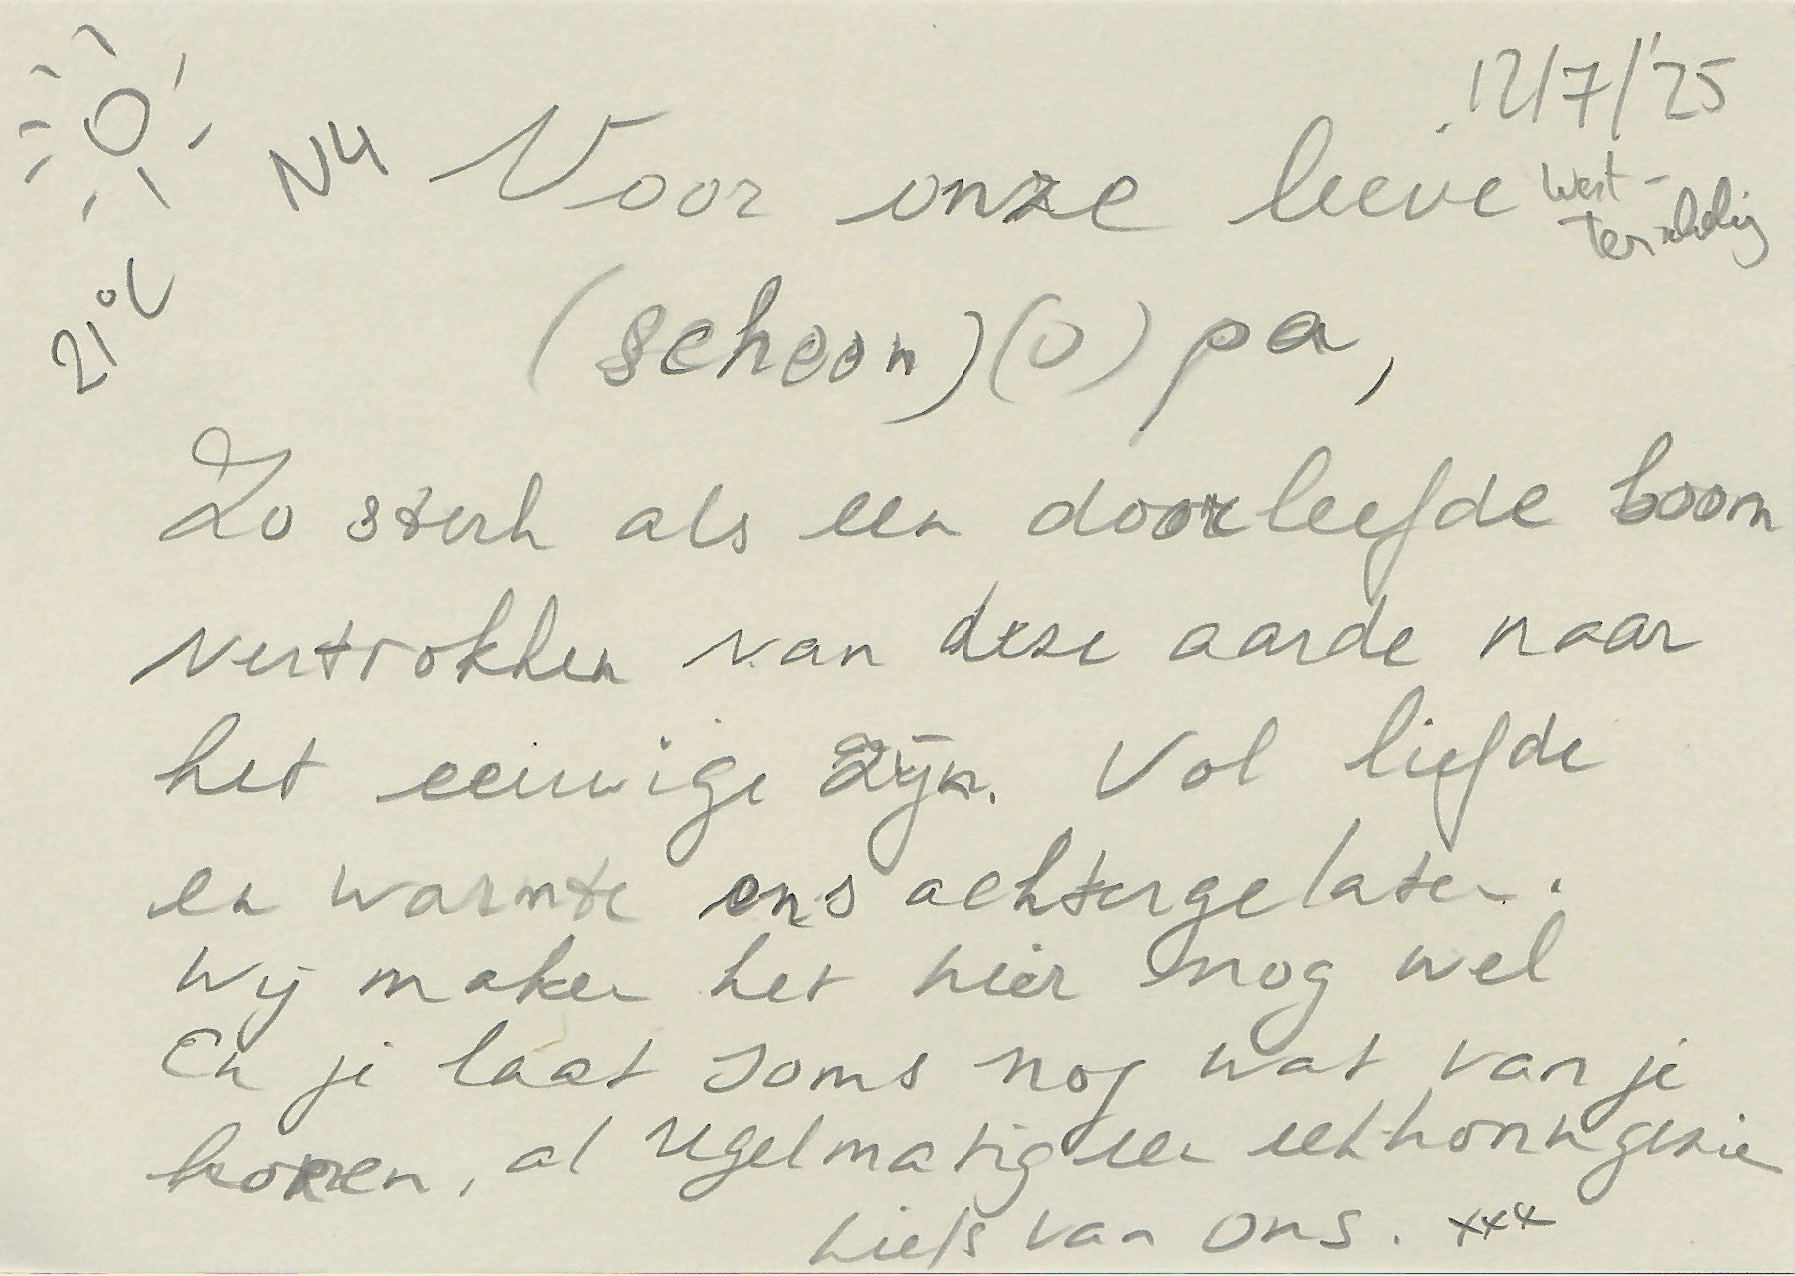 12/7/'25
N4 Voor onze lieve
West-
Terschelling
21°C
(schoon)(o)pa,
Zo sterk als een doorleefde boom
vertrokken van deze aarde naar
het eeuwige zijn. Vol liefde
en warmte ons achtergelaten.
Wij maken het hier nog wel
En je laat soms nog wat van je
horen, al regelmatig een eekhoorn gezien
Liefs van ons. xxx